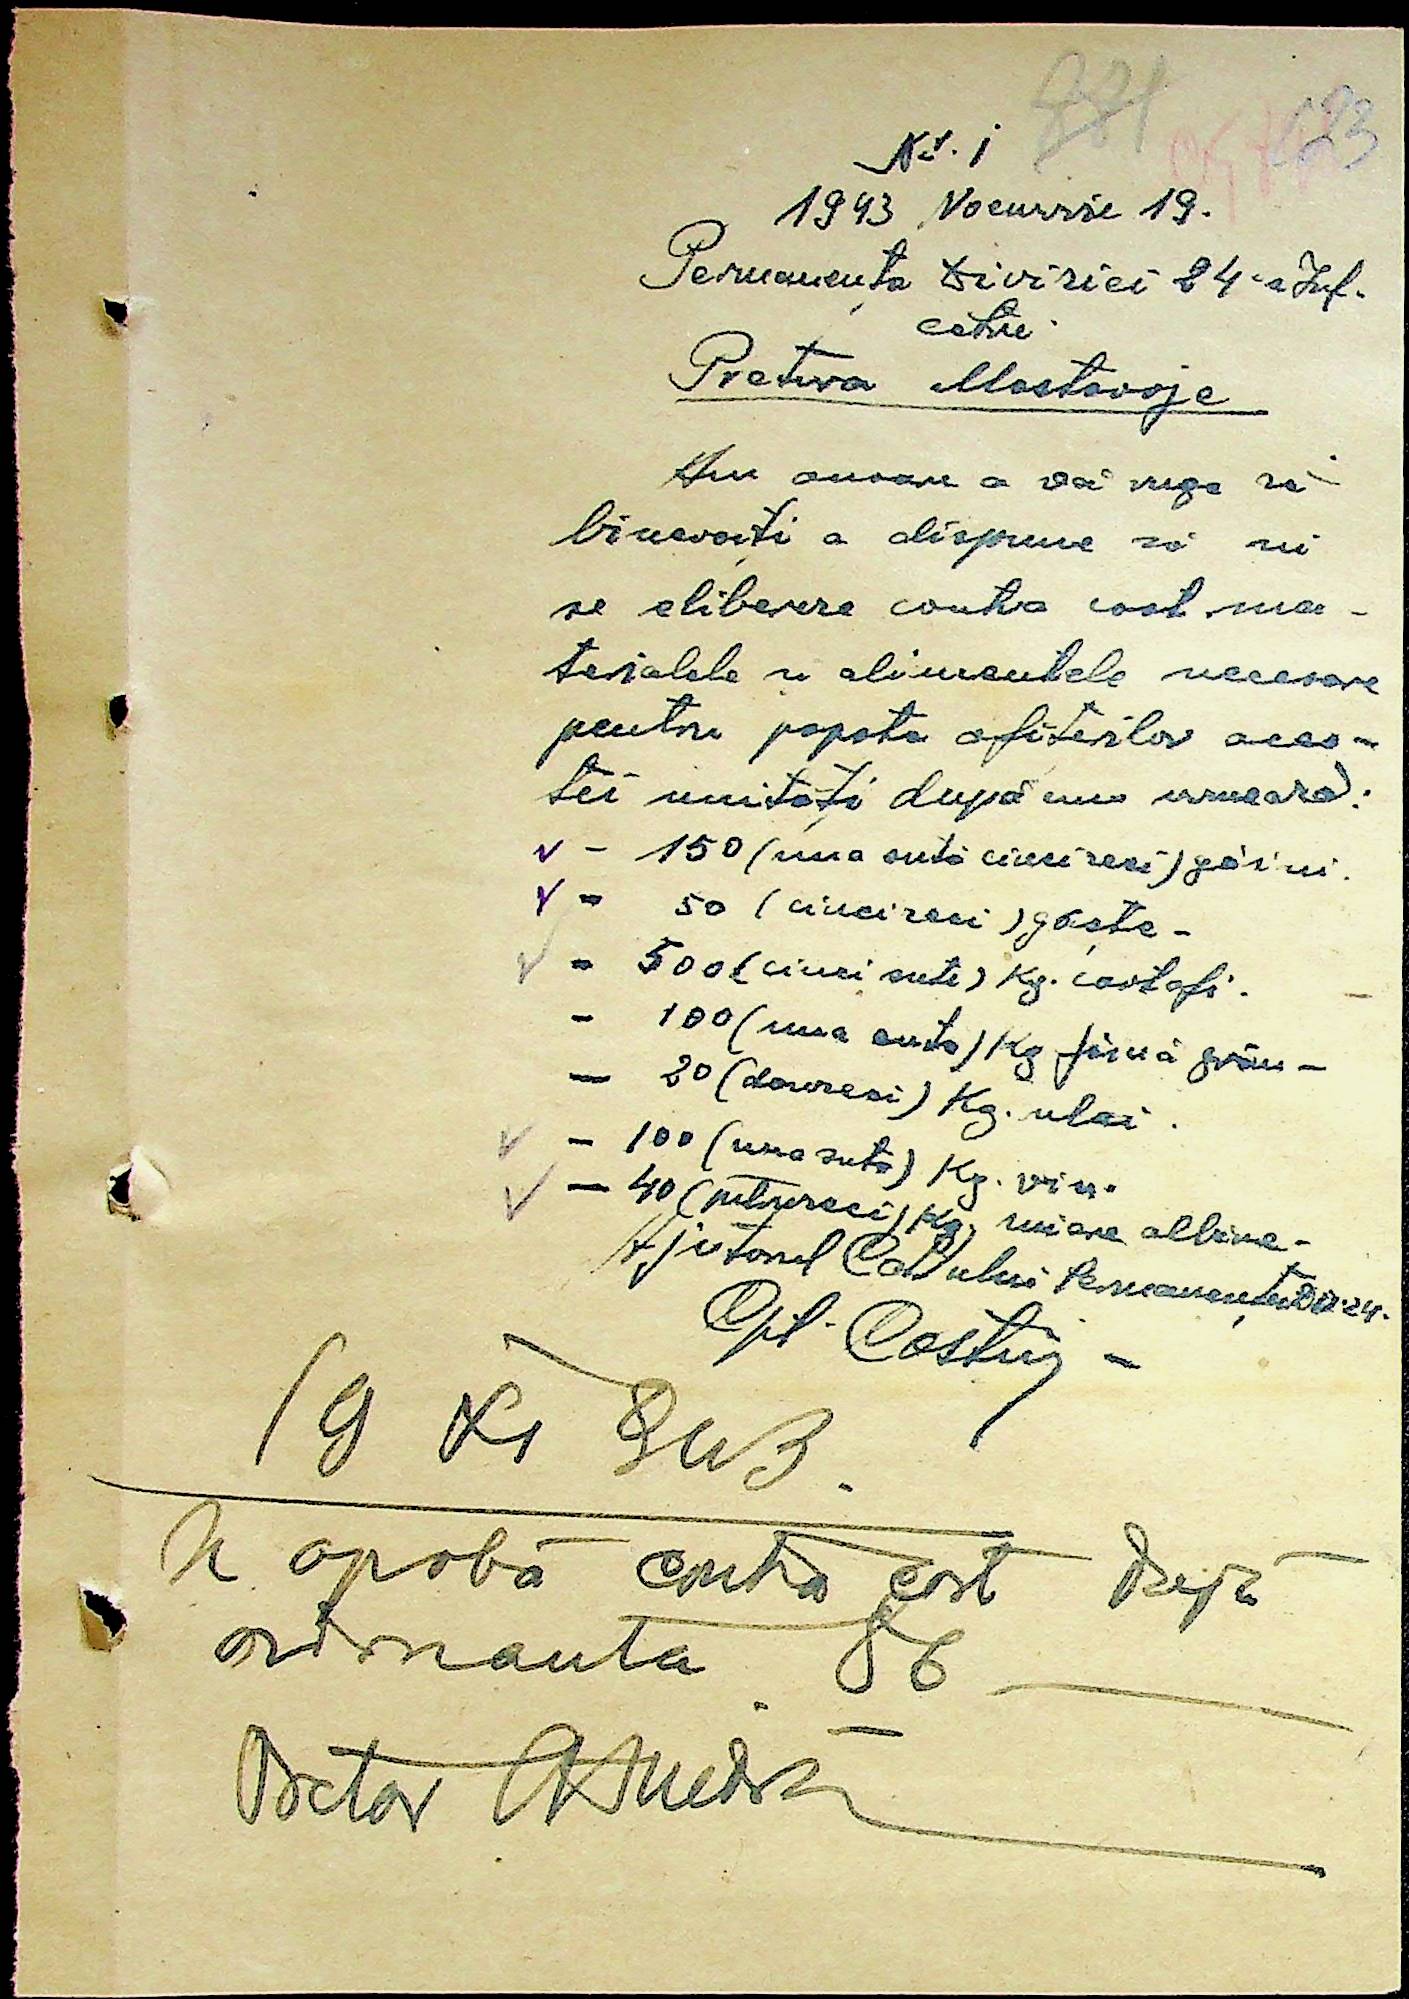 881
193
Nr. 1
1943 Noemvrie 19.
Permanenta Diviziei 24-a Inf.
catre
Pretura Mostovoje
Am onoare a vă ruga să
binevoiți a dispune să ni
se elibereze contra cost ma-
terialele și alimentele necesare
pentru popota ofițerilor aces-
tei unități după cum urmează:
v - 150 (una sută cincizeci) găini.
v - 50 (cincizeci) gâște -
v - 500 (cinci sute) Kg. cartofi.
- 100 (una suta) Kg făină grâu -
- 20 (douazeci) Kg. ulei.
v - 100 (una suta) Kg. vin.
v - 40 (patruzeci) Kg. miere albine -
Ajutorul Com̄ului Permanenței Div. 24.
Cpt. Costin -
19 XI 943.
Se aprobă contra cost după
ordonanta 86
Pretor